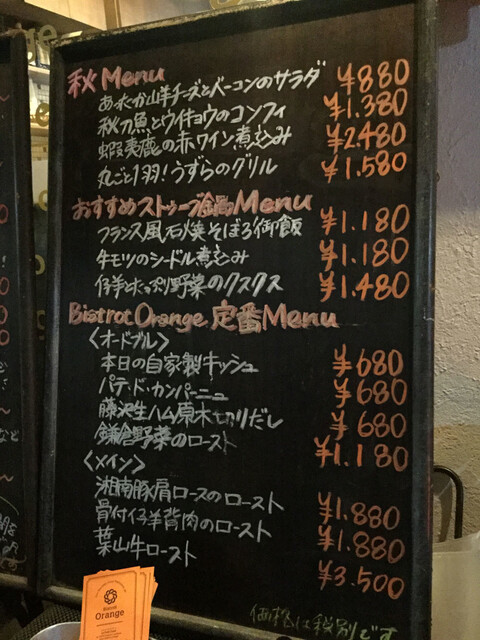 秋 Menu
あったか山羊チーズとベーコンのサラダ ¥880
秋刀魚とウイキョウのコンフィ ¥1.380
蝦夷鹿の赤ワイン煮込み ¥2.480
丸ごと1羽!うずらのグリル ¥1.580
おすすめストゥーブ鍋Menu
フランス風石焼そぼろ御飯 ¥1.180
牛モツのシードル煮込み ¥1.180
仔羊とたっぷり野菜のクスクス ¥1.480
Bistrot Orange 定番Menu
〈オードブル〉
本日の自家製キッシュ ¥680
パテ・ド・カンパーニュ ¥680
藤沢生ハム原木切りだし ¥680
鎌倉野菜のロースト ¥1.180
〈メイン〉
湘南豚肩ロースのロースト ¥1.880
骨付仔羊背肉のロースト ¥1.880
葉山牛ロースト ¥3.500
価格は税別です
Bistrot
Orange